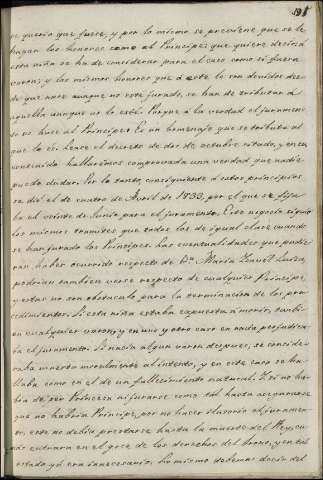 191
se queria que fuese, y por lo mismo se previene que se le
hagan los honores como al Principe: que quiere decir á
esta niña se ha de considerar para el caso como si fuera
varon; y los mismos honores que á este le son devidos des-
de que nace aunque no esté jurado, se han de tributar á
aquella aunque no lo esté. Porque á la verdad el juramento
no hace al Principe: Es un homenaje que se tributa al
que lo es. hence el decreto de dos de octubre citado, y en su
contenido hallaremos comprovada una verdad que nadie
puede dudar. Por lo tanto consiguiente á estos principios
se dió el de cuatro de Avril de 1833, por el que se fija
ha el veinte de Junio para el juramento. Este negocio siguió
los mismos tramites que todos los de igual clase cuando
se han jurado los Principes. has eventualidades que pudie-
ran haber ocurrido respecto de D.ª Maria Isavel Luisa,
podrian tambien verse respecto de cualquier Principe,
y estas no son obstaculo para la terminacion de los pro-
cedimientos. Si esta niña estaba expuesta á morir, tambi-
en cualquier varon, y en uno y otro caso en nada perjudica-
ba el juramento. Si nacia algun varon despues, se conside-
raba muerta moralmente al intento, y en este caso se ha-
llaba como en el de un fallecimiento natural. Y si no ha-
bia de ser Princesa ni jurarse como tal hasta asegurarse
que no habria Principe, por no hacer ilusorio el juramen-
to, este no debia prestarse hasta la muerte del Rey, cu-
ando entrara en el goce de los derechos del trono, y en tal
estado yá era innecesario. Lo mismo debemos decir del